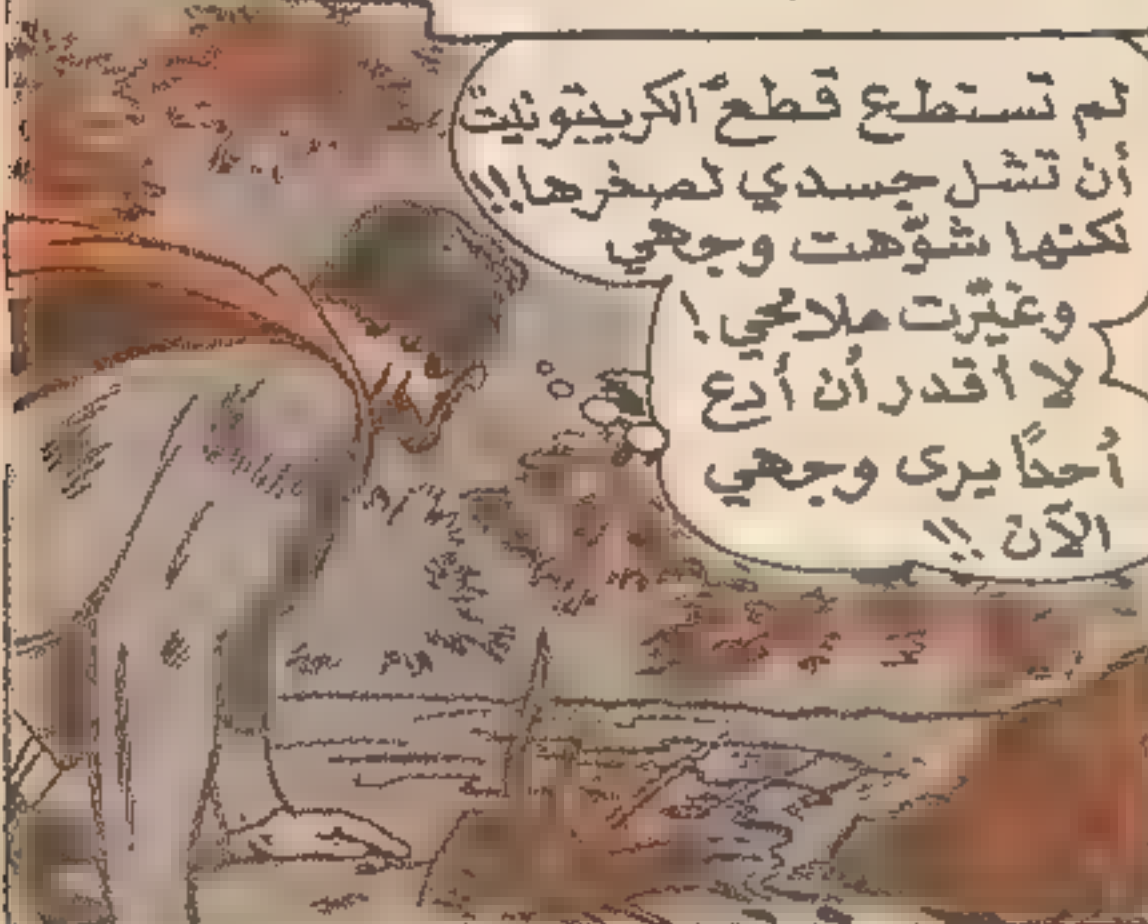 لم تستطع قطع الكريبتونيت
أن تشل جسدي لصغرها!!
لكنها شوّهت وجهي
وغيّرت ملامحي!
لا أقدر أن أدع
أحدًا يرى وجهي
الآن!!